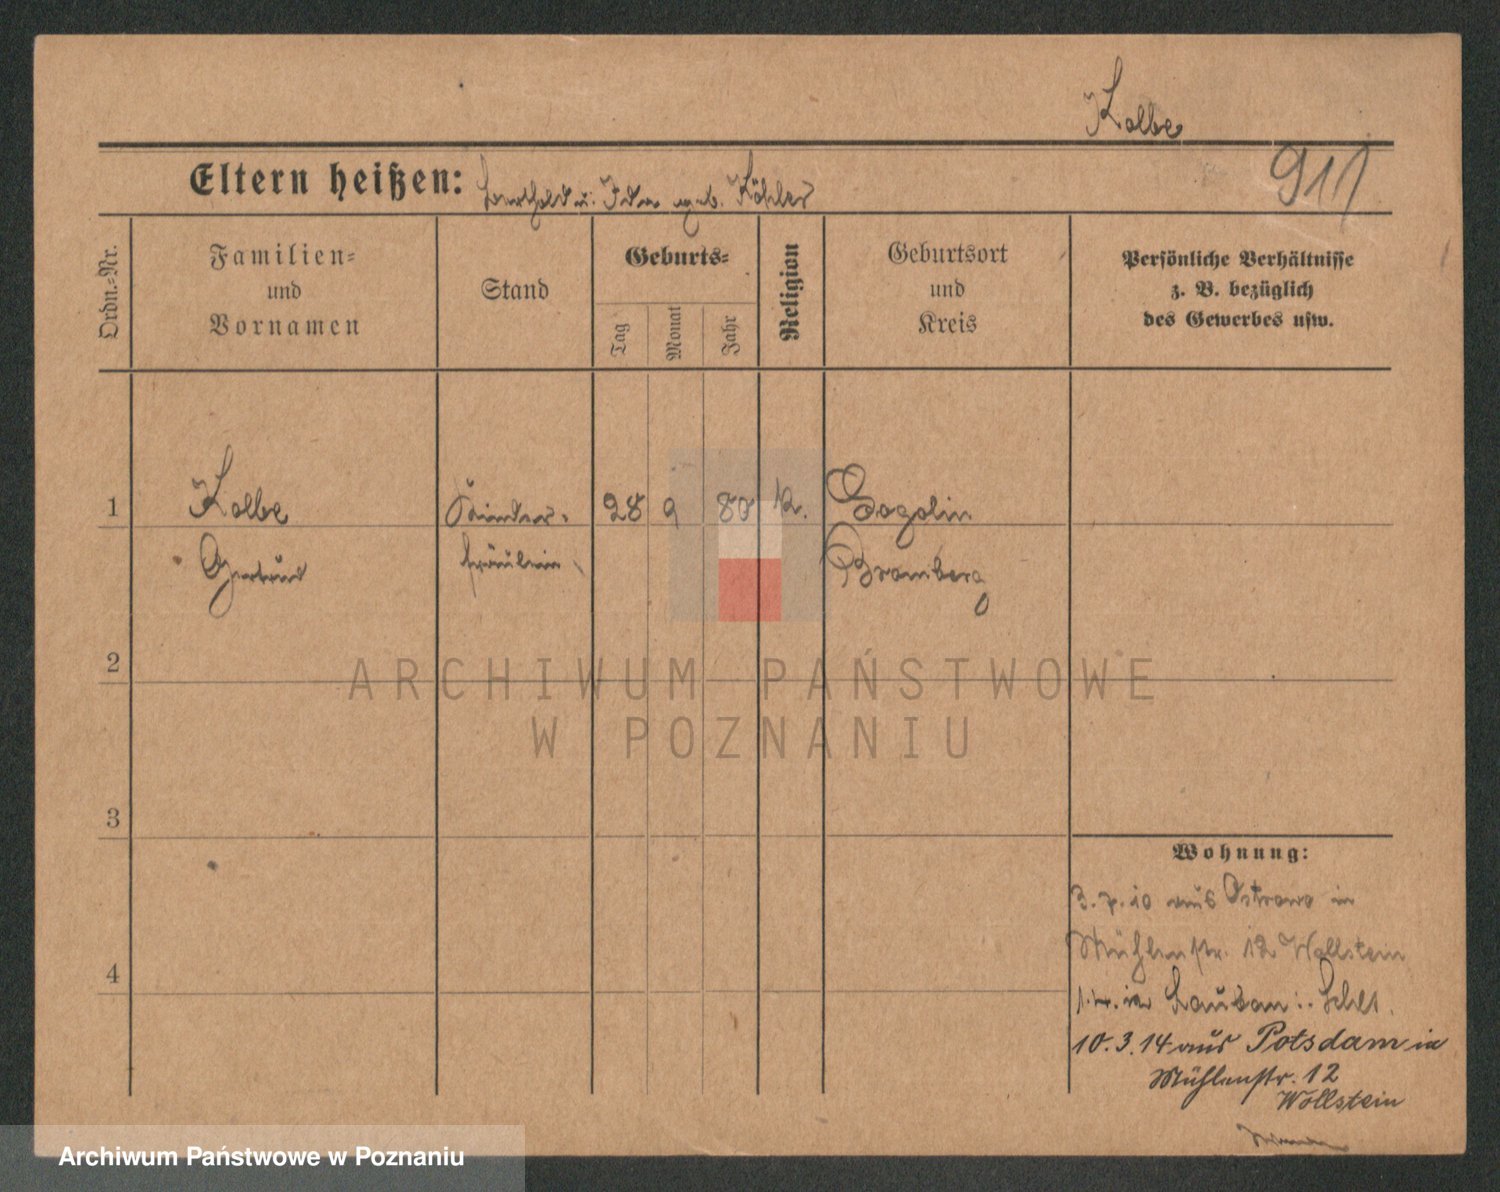 Kolbe
911
Eltern heißen: Berthold u. Ida geb. Köhler
Ordn.-Nr.
Familien-
und
Vornamen
Stand
Geburts-
Tag
Monat
Jahr
Religion
Geburtsort
und
Kreis
Persönliche Verhältnisse
z. B. bezüglich
des Gewerbes usw.
1
Kolbe
Kinder-
28 9 80 k.
Gogolin
Gertrud
fräulein
Bromberg
2
ARCHIWUM PAŃSTWOWE
W POZNANIU
3
Wohnung:
3.7.10 aus Ostrowo in
Mühlenstr. 12 Wollstein
4
Lauban i. Schl.
10.3.14 aus Potsdam in
Mühlenstr. 12
Wollstein
Archiwum Państwowe w Poznaniu